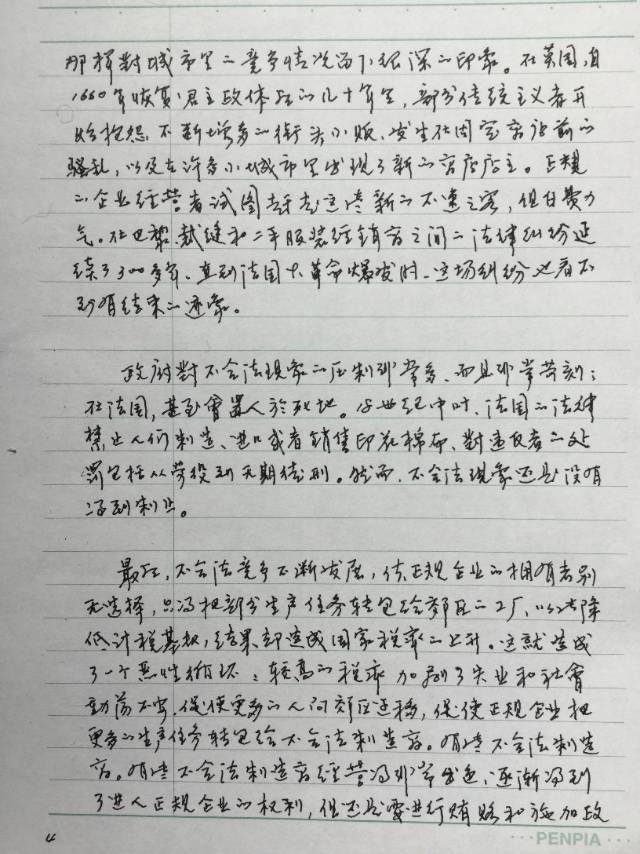 那样對城市里的竞争情况留下很深的印象。在英国,自
1660年恢复君主政体后的几十年里,部分传统主义者开
始抱怨不断增多的街头小贩、发生在固定商店前的
骚乱,以及在许多小城市里出现了新的商店店主。正规
的企业经营者试图赶走这些新的不速之客,但白费力
气。在巴黎,裁缝和二手服装经销商之间的法律纠纷延
续了300多年,直到法国大革命爆发时,这场纠纷也看不
到有结束的迹象。
政府對不合法现象的压制非常多,而且非常苛刻;
在法国,甚至會置人於死地。18世纪中叶,法国的法律
禁止人们制造、进口或者销售印花棉布,對违反者的处
罚包括从劳役到无期徒刑。然而,不合法现象还是没有
得到制止。
最后,不合法竞争不断发展,使正规企业的拥有者别
无选择,只得把部分生产任务转包给郊区的工厂,以此降
低计税基数,结果却造成国家税率的上升。这就造成
了一个恶性循环:较高的税率加剧了失业和社會
動荡不安,促使更多的人向郊区迁移,促使正规企业把
更多的生产任务转包给不合法制造商。有些不合法制造
商。有些不合法制造商经营得非常出色,逐渐得到
了进入正规企业的权利,但还是要进行贿赂和施加政
4
PENPIA